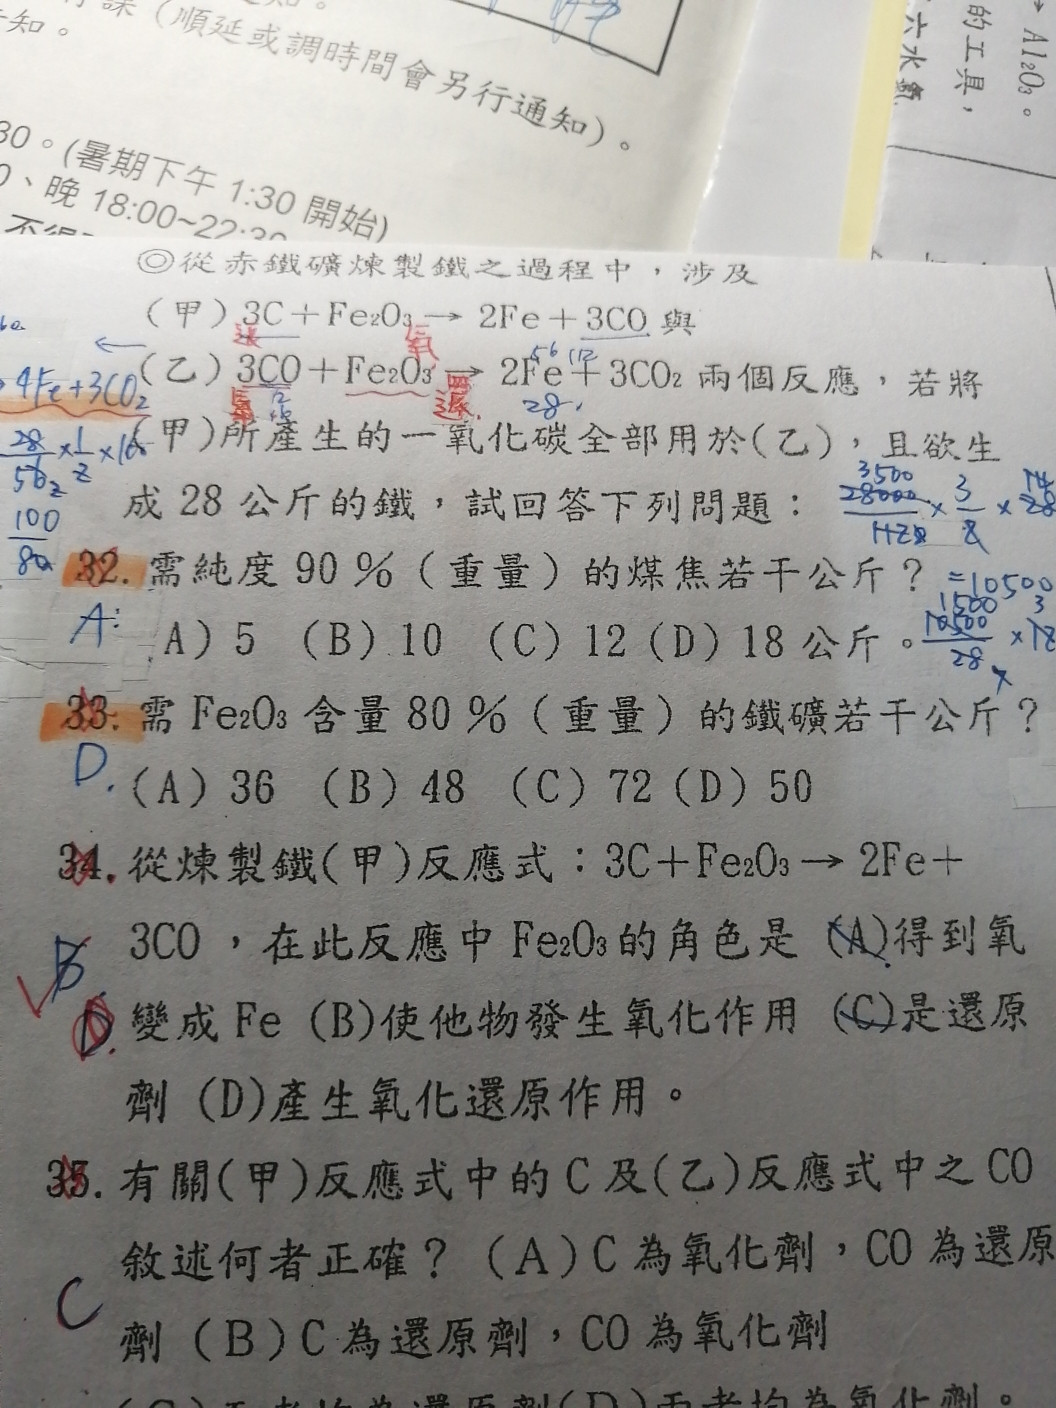 （順延或調時間會另行通知）。
知。
30。(暑期下午 1:30 開始)
、晚 18:00~22:30
→ Al₂O₃。
的工具，
六水氯
◎從赤鐵礦煉製鐵之過程中，涉及
（甲）3C＋Fe₂O₃→ 2Fe＋3CO 與
（乙）3CO＋Fe₂O₃→ 2Fe＋3CO₂ 兩個反應，若將
56 112
28
4Fe+3CO₂
（甲）所產生的一氧化碳全部用於(乙)，且欲生
成 28 公斤的鐵，試回答下列問題：
32. 需純度 90％（重量）的煤焦若干公斤？
A:
(A) 5 (B) 10 (C) 12 (D) 18 公斤。
=10500
33. 需 Fe₂O₃ 含量 80％（重量）的鐵礦若干公斤？
D.
(A) 36 (B) 48 (C) 72 (D) 50
34. 從煉製鐵(甲)反應式：3C＋Fe₂O₃→ 2Fe＋
3CO，在此反應中 Fe₂O₃的角色是 (A)得到氧
B
D. 變成 Fe (B)使他物發生氧化作用 (C)是還原
劑 (D)產生氧化還原作用。
35. 有關(甲)反應式中的 C 及(乙)反應式中之 CO
敘述何者正確？（A）C 為氧化劑，CO 為還原
C
劑（B）C 為還原劑，CO 為氧化劑
（C）兩者均為還原劑(D)兩者均為氧化劑。